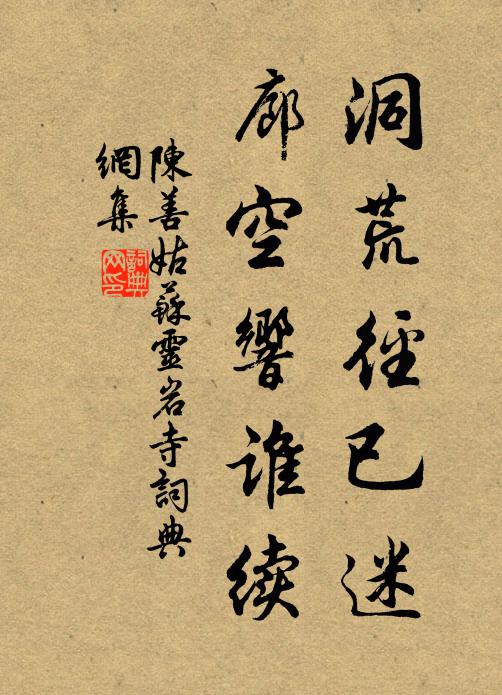 洞荒径已迷
廊空響谁续
陳善姑蘇靈岩寺詞典
網集
詞典
网印